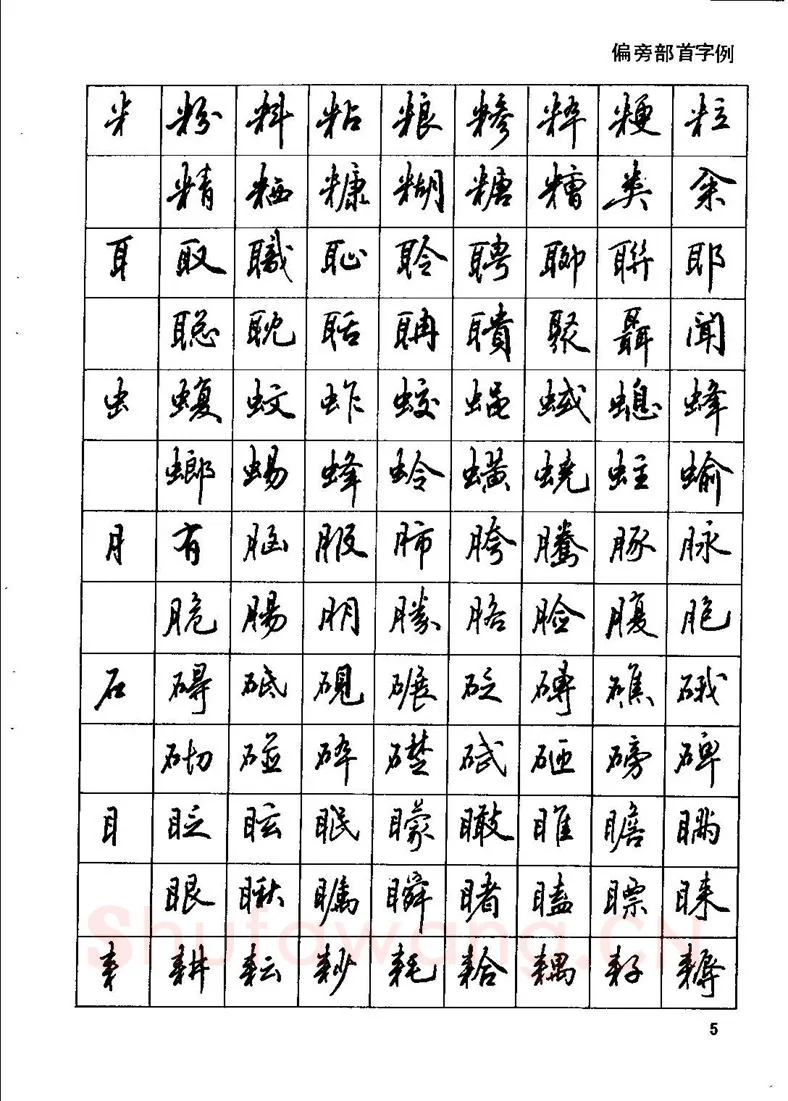 偏旁部首字例
米 粉 料 粘 粮 糁 粹 粳 粒
精 粞 糠 糊 糖 糟 类
耳 取 職 耻 聆 聘 聊 聯 耶
聪 耽 聒 聃 聵 聚 聶 聞
虫 蝮 蚊 蚱 蛟 蝇 蜮 蟋 蜂
螂 蜴 蜂 蛉 蟥 蛲 蛀 蝓
月 有 脑 服 肺 胯 腾 豚 脉
脆 腸 明 勝 胳 脸 腹 胞
石 碍 砥 硯 碾 砭 磚 礁 硪
砌 碰 碎 礎 碔 硒 磅 碑
目 眨 眩 眠 矇 瞰 睢 瞻 瞒
眼 瞅 瞩 瞬 睹 瞌 瞟 睐
耒 耕 耘 耖 耗 耠 耦 耔 耨
Shufawang.CN
5